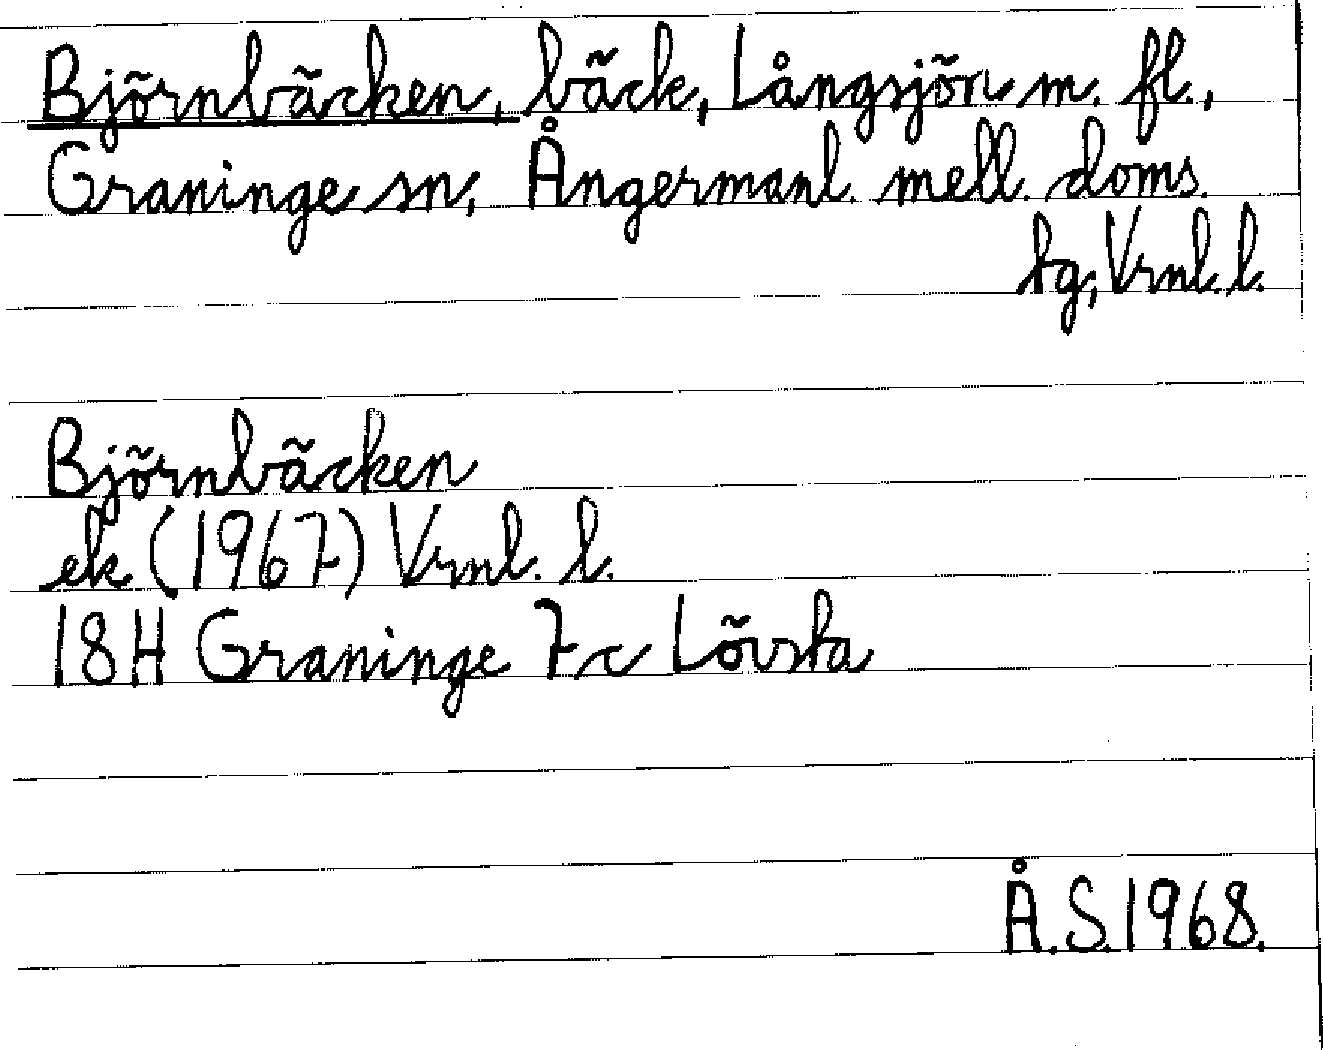 Björnbäcken, bäck, Långsjön m. fl.,
Graninge sn, Ångermanl. mell. doms.
tg, Vrnl. l.
Björnbäcken
ek (1967) Vrnl. l.
18H Graninge 7c Lövsta
Å.S. 1968.